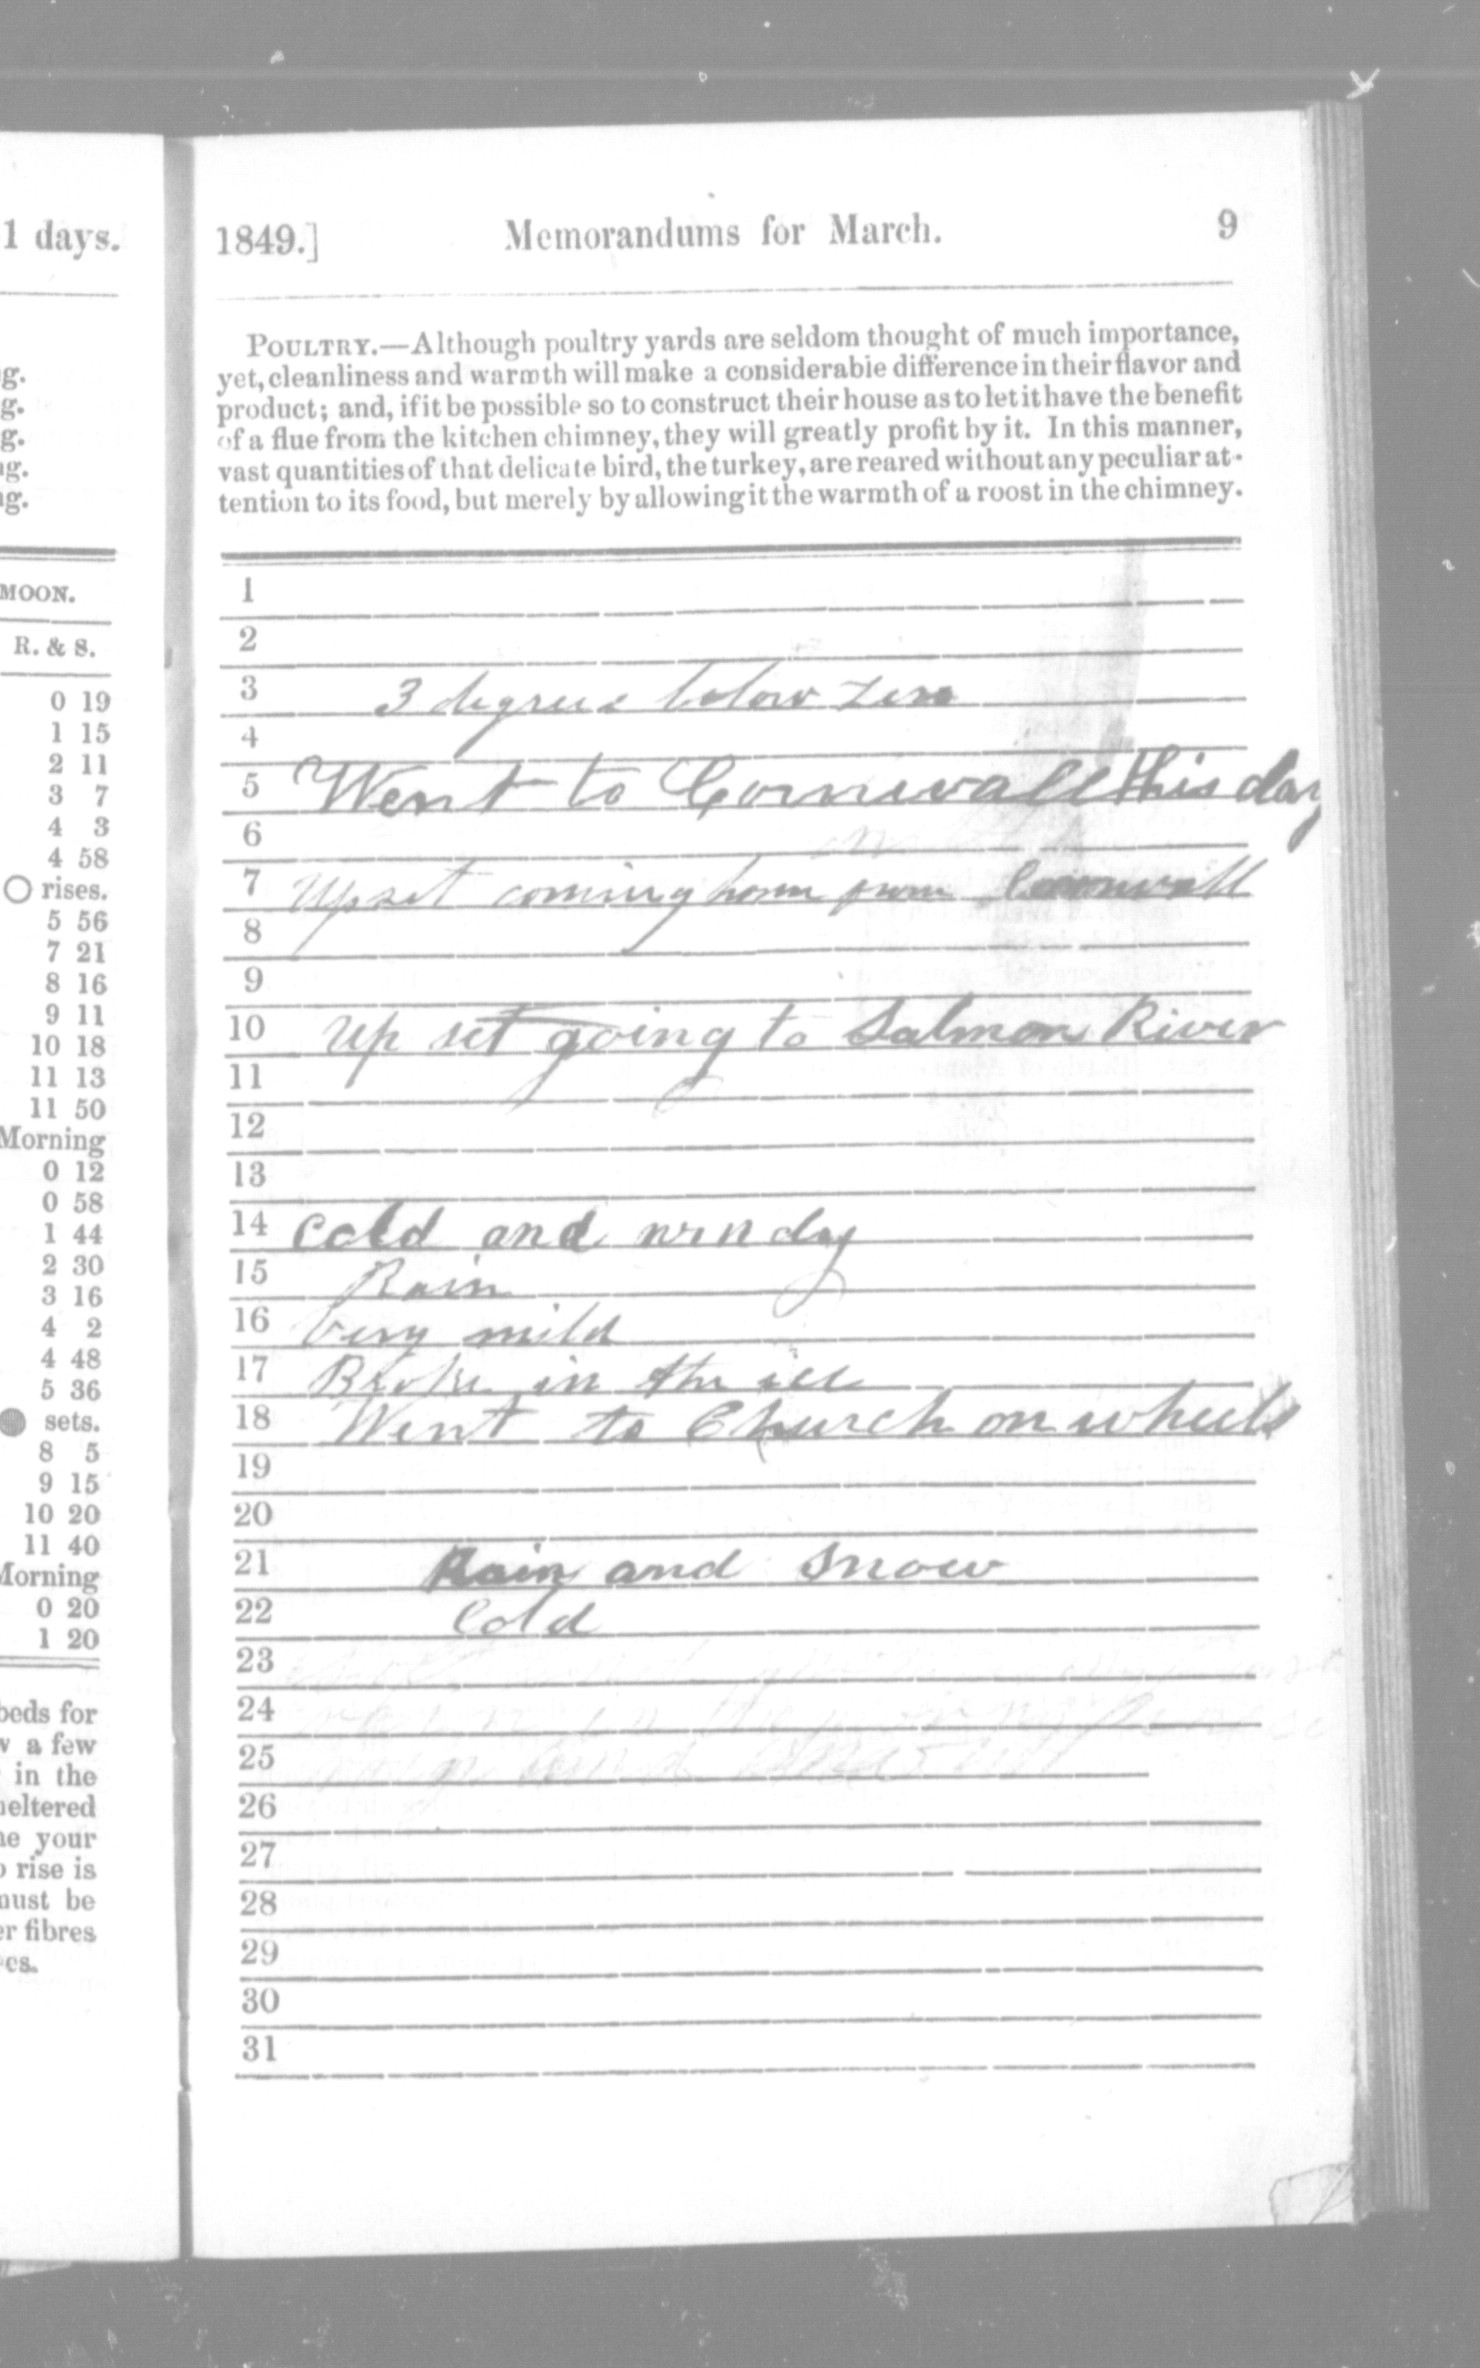 1 days.
g.
g.
g.
ng.
ng.
MOON.
R. & S.
0 19
1 15
2 11
3 7
4 3
4 58
rises.
5 56
7 21
8 16
9 11
10 18
11 13
11 50
Morning
0 12
0 58
1 44
2 30
3 16
4 2
4 48
5 36
sets.
8 5
9 15
10 20
11 40
Morning
0 20
1 20
beds for
a few
in the
heltered
your
rise is
must be
er fibres
1849.] Memorandums for March. 9
POULTRY.—Although poultry yards are seldom thought of much importance,
yet, cleanliness and warmth will make a considerable difference in their flavor and
product; and, if it be possible so to construct their house as to let it have the benefit
of a flue from the kitchen chimney, they will greatly profit by it. In this manner,
vast quantities of that delicate bird, the turkey, are reared without any peculiar at-
tention to its food, but merely by allowing it the warmth of a roost in the chimney.
1
2
3 3 degrees below Zero
4
5 Went to Cornwall this day
6
7 Upset coming home from Cornwall
8
9
10 Up set going to Salmon River
11
12
13
14 Cold and windy
15 Rain
16 Very mild
17 Broke in the ice
18 Went to Church on wheels
19
20
21 Rain and Snow
22 Cold
23
24
25
26
27
28
29
30
31